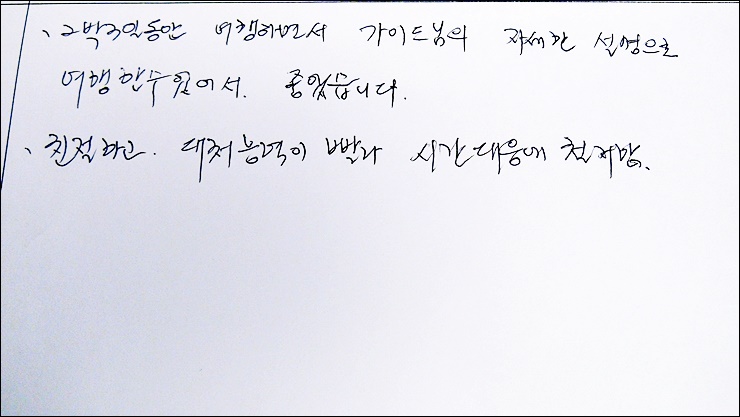 、2박3일동안 여행하면서 가이드님의 자세한 설명으로
여행할수있어서. 좋았습니다.
、친절하고. 대처능력이 빨라 시간대응에 철저함.